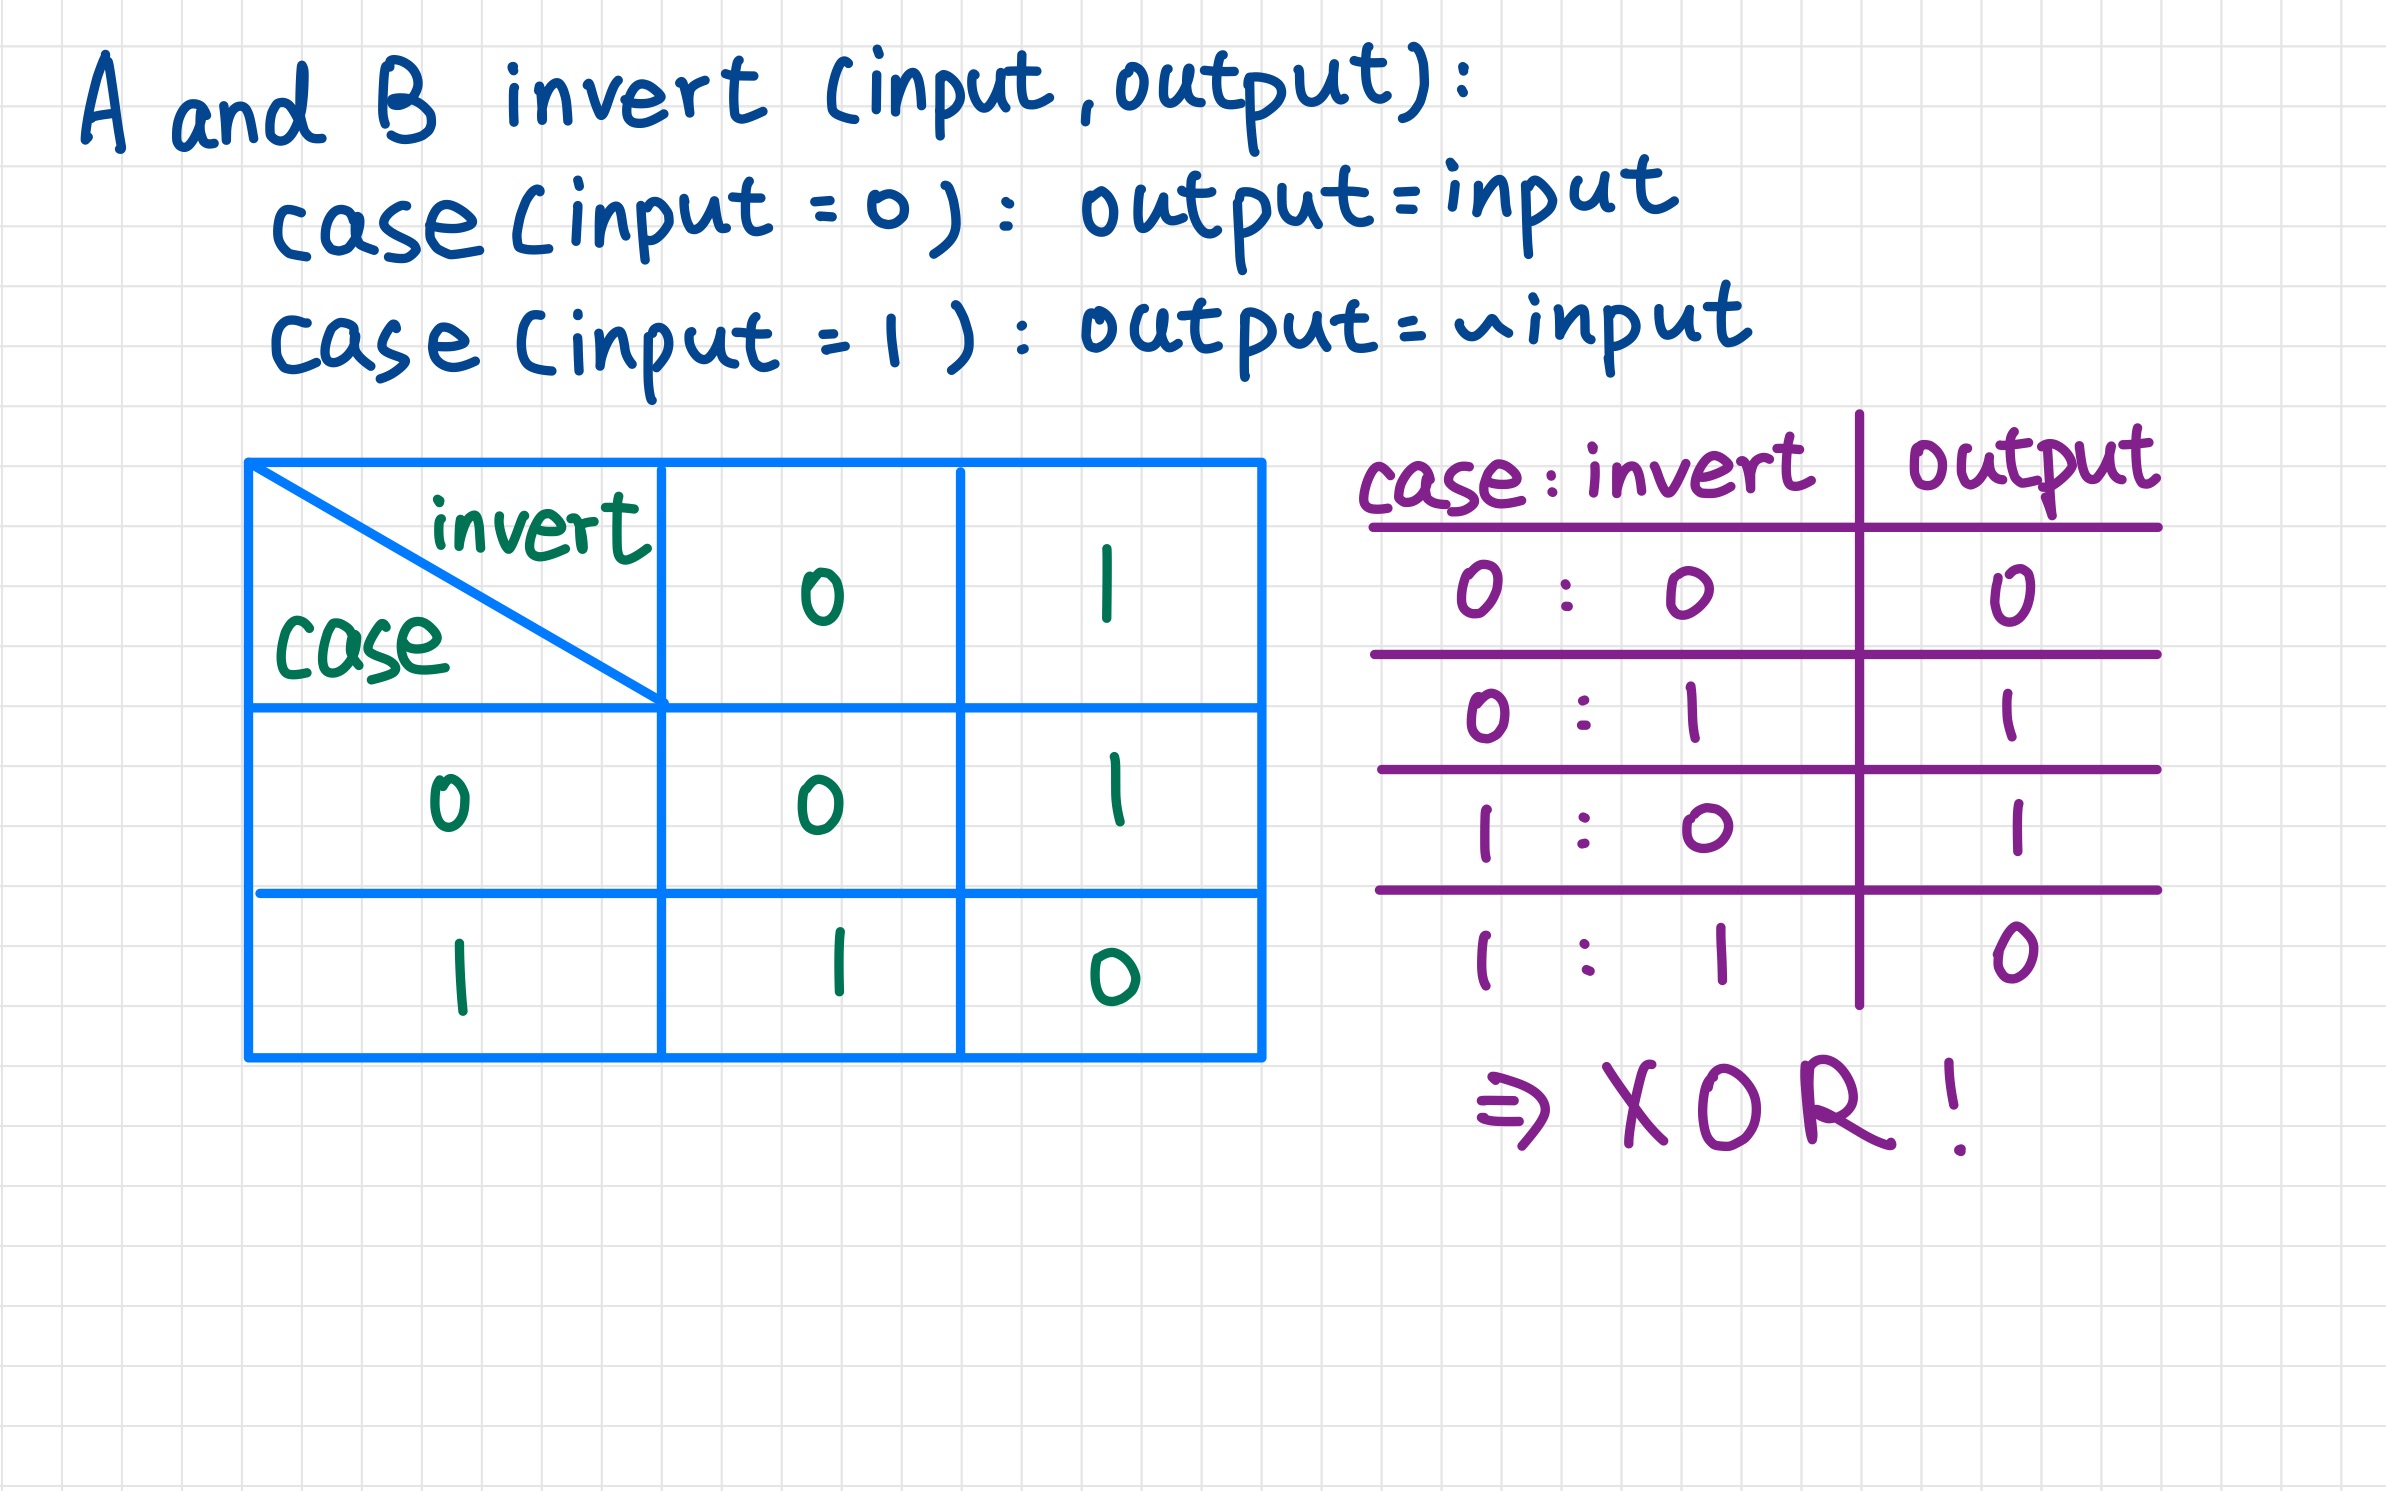 A and B invert (input, output):
case (input = 0): output = input
case (input = 1): output = ~input
invert 0 1
case
0 0 1
1 1 0
case: invert output
0 : 0 0
0 : 1 1
1 : 0 1
1 : 1 0
⇒ XOR!